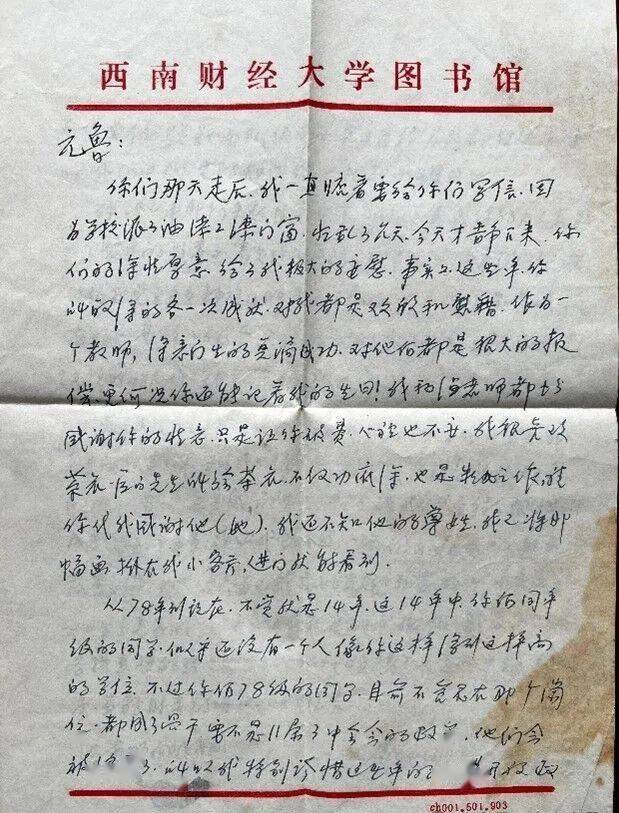 西南财经大学图书馆
元鲁：
你们那天走后，我一直惦着要给你们写信，因
为学校派了油漆工漆门窗，忙乱了几天，今天才静下来，你
们的深情厚意给了我极大的安慰，事实上这些年，你
所取得的每一次成就，对我都是欢欣和慰藉，作为一
个教师，得来门生的美满成功，对他们都是很大的报
偿，更何况你还能记着我的生日！我和 老师都
感谢你的情意，只是让你破费，心里也不安，我很喜欢
菊花 先生的 菊花，不仅功底深，也是 之作，请
你代我感谢他(她)，我还不知他的尊姓，我已将那
幅画，挂在我小客厅，进门就能看到。
从78年到现在，不觉就是14年，这14年中，你们同年
级的同学，似乎还没有一个人像你这样得到这样高
的学位，不过你们78级的同学，目前不管是在那个岗
位，都成了骨干，要不是11届3中全会的政 ，他们会
被 了，所以我特别珍惜这些年的 开放政
ch001.501.903